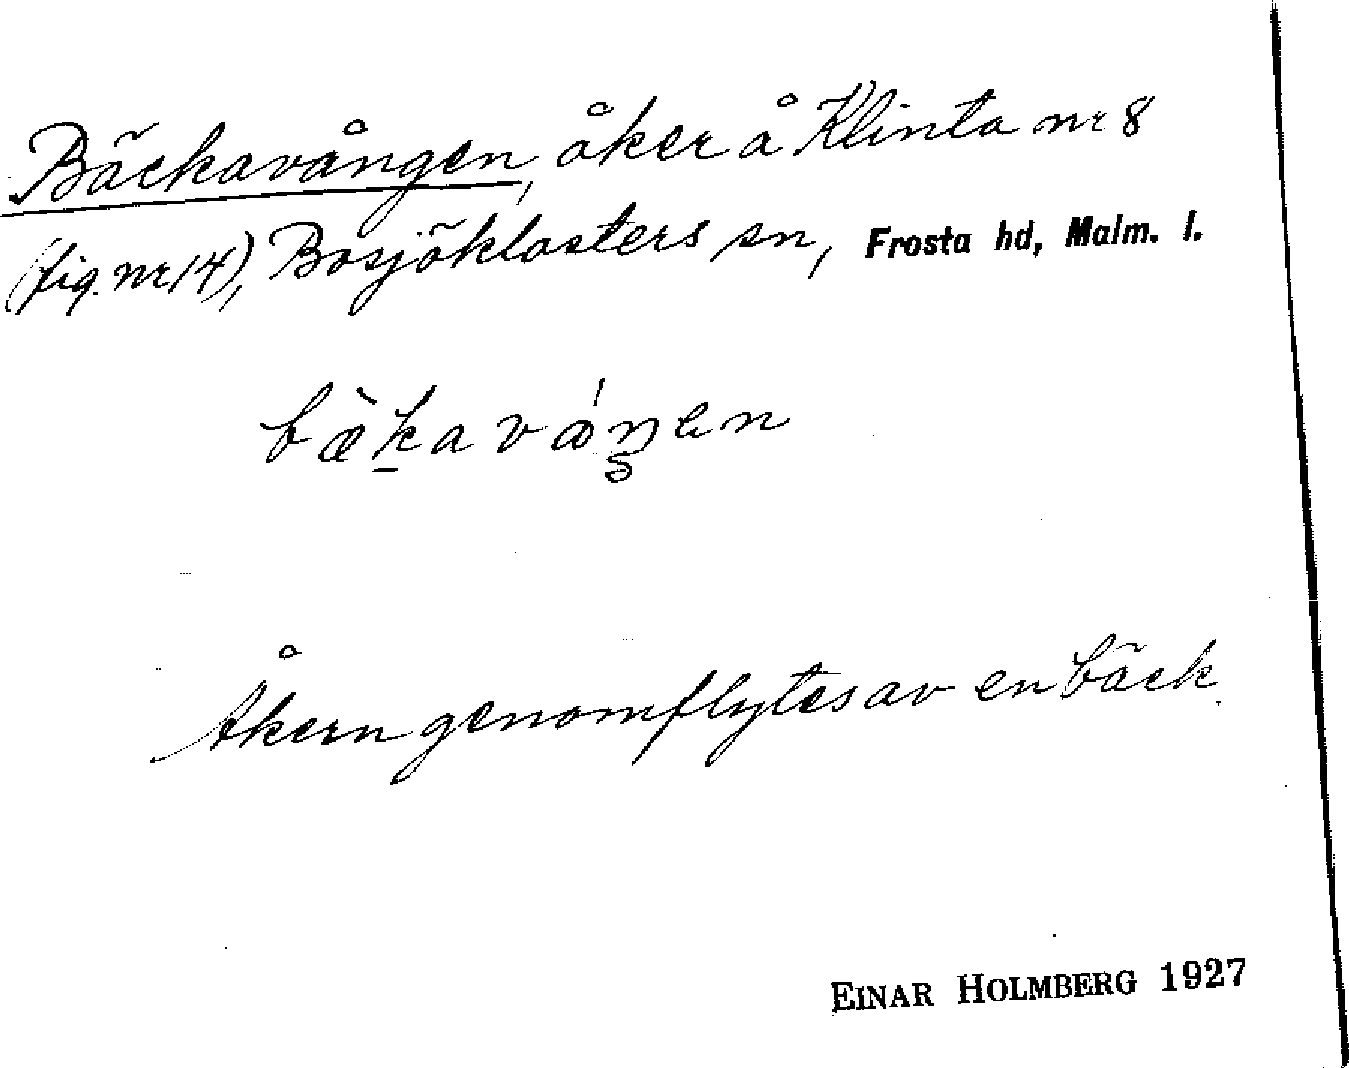 Bäckavången, åker å Klinta nr 8
(fig. nr 14), Bosjöklosters sn, Frosta hd, Malm. l.
bæ̀k̠aváŋen
Åkern genomflytes av en bäck.
EINAR HOLMBERG 1927